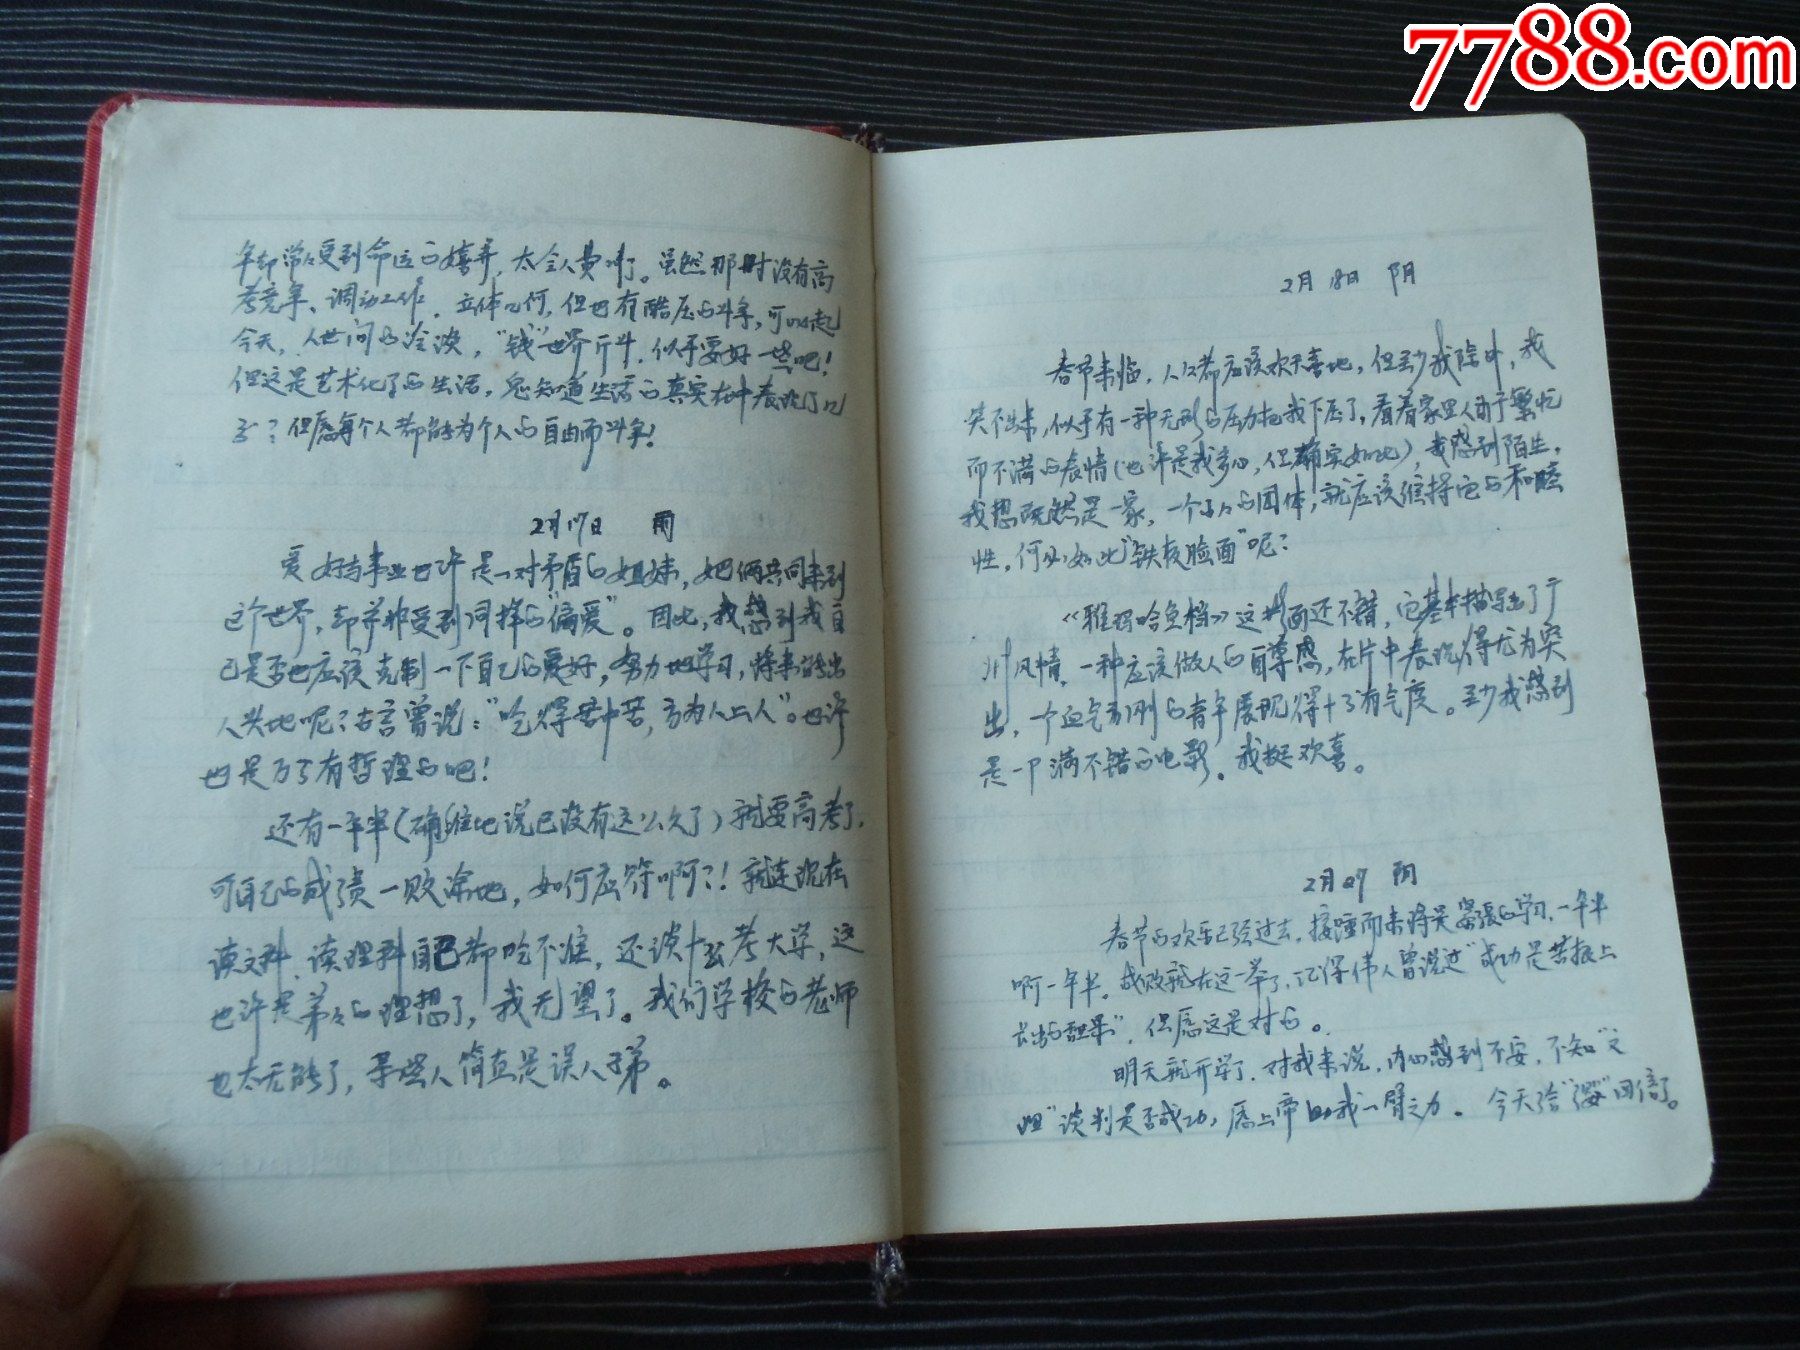 7788.com
年却常常受到命运的嬉弄，太令人费叮。虽然那时没有高
考竞争、调动工作、立体几何，但也有酷压的斗争，可比起
今天，人世间的冷淡，“钱”世界斤斗，似乎要好一些吧！
但这是艺术化了的生活，怎知道生活的真实在中表现了几
分？但愿每个人都能为个人的自由而斗争！
2月17日 雨
爱好与事业也许是一对矛盾的姐妹，她俩共同来到
这个世界，却并非受到同样的“偏爱”。因此，我感到我自
己是否也应该克制一下自己的爱好，努力地学习，将来能出
人头地呢？古言曾说：“吃得苦中苦，方为人上人”。也许
也是万分有哲理的吧！
还有一年半（确准地说已没有这么久了）就要高考了，
可自己的成绩一败涂地，如何应符啊？！就连现在
读文科、读理科自己都吃不准，还谈什么考大学，这
也许是弟弟的理想了，我无望了。我们学校的老师
也太无能了，某些人简直是误人子弟。
2月18日 阴
春节来临，人人都应该欢天喜地，但至少我除外，我
笑不出来，似乎有一种无形的压力把我下压了，看着家里人由于繁忙
而不满的表情（也许是我多心，但确实如此），我感到陌生，
我想既然是一家，一个小小的团体，就应该维持它的和睦
性，何必如此“铁板脸面”呢？
《雅玛哈鱼档》这片面还不错，它基本描写出了广
州风情，一种应该做人的自尊感，在片中表现得尤为突
出，一个血气方刚的青年展现得十分有气度。至少我感到
是一部满不错的电影，我挺欢喜。
2月27 阴
春节的欢乐已经过去，接踵而来将是紧张的学习，一年半
啊一年半，成败就在这一举了，记得伟人曾说过“成功是苦根上
长出的甜果”，但愿这是对的。
明天就开学了，对我来说，内心感到不安，不知“文
姐”谈判是否成功，愿上帝助我一臂之力。 今天给“ ”回信了。